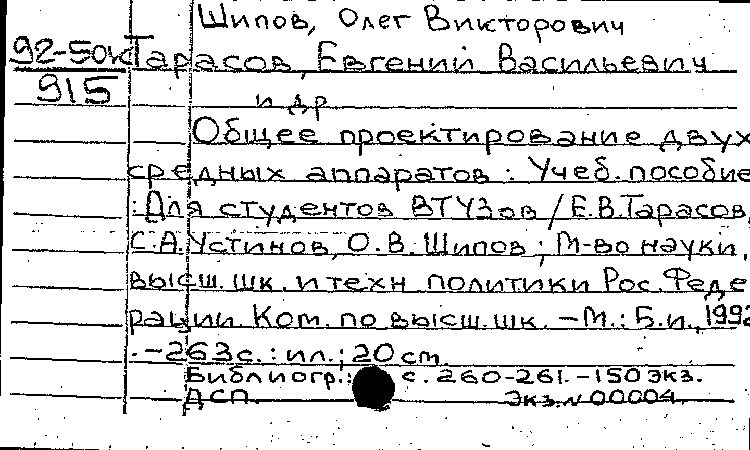 Шипов, Олег Викторович
92-50к Тарасов, Евгений Васильевич
915
и др
Общее проектирование двух
средных аппаратов : Учеб. пособие
: Для студентов ВТУЗов / Е.В.Тарасов,
С.А.Устинов, О.В.Шипов ; М-во науки,
высш. шк. и техн политики Рос. Феде
рации. Ком. по высш. шк. – М. : Б.и., 1992
. – 263с. : ил. ; 20 см.
Библиогр.: с. 260-261. – 150 экз.
ДСП. Экз. N 00004.